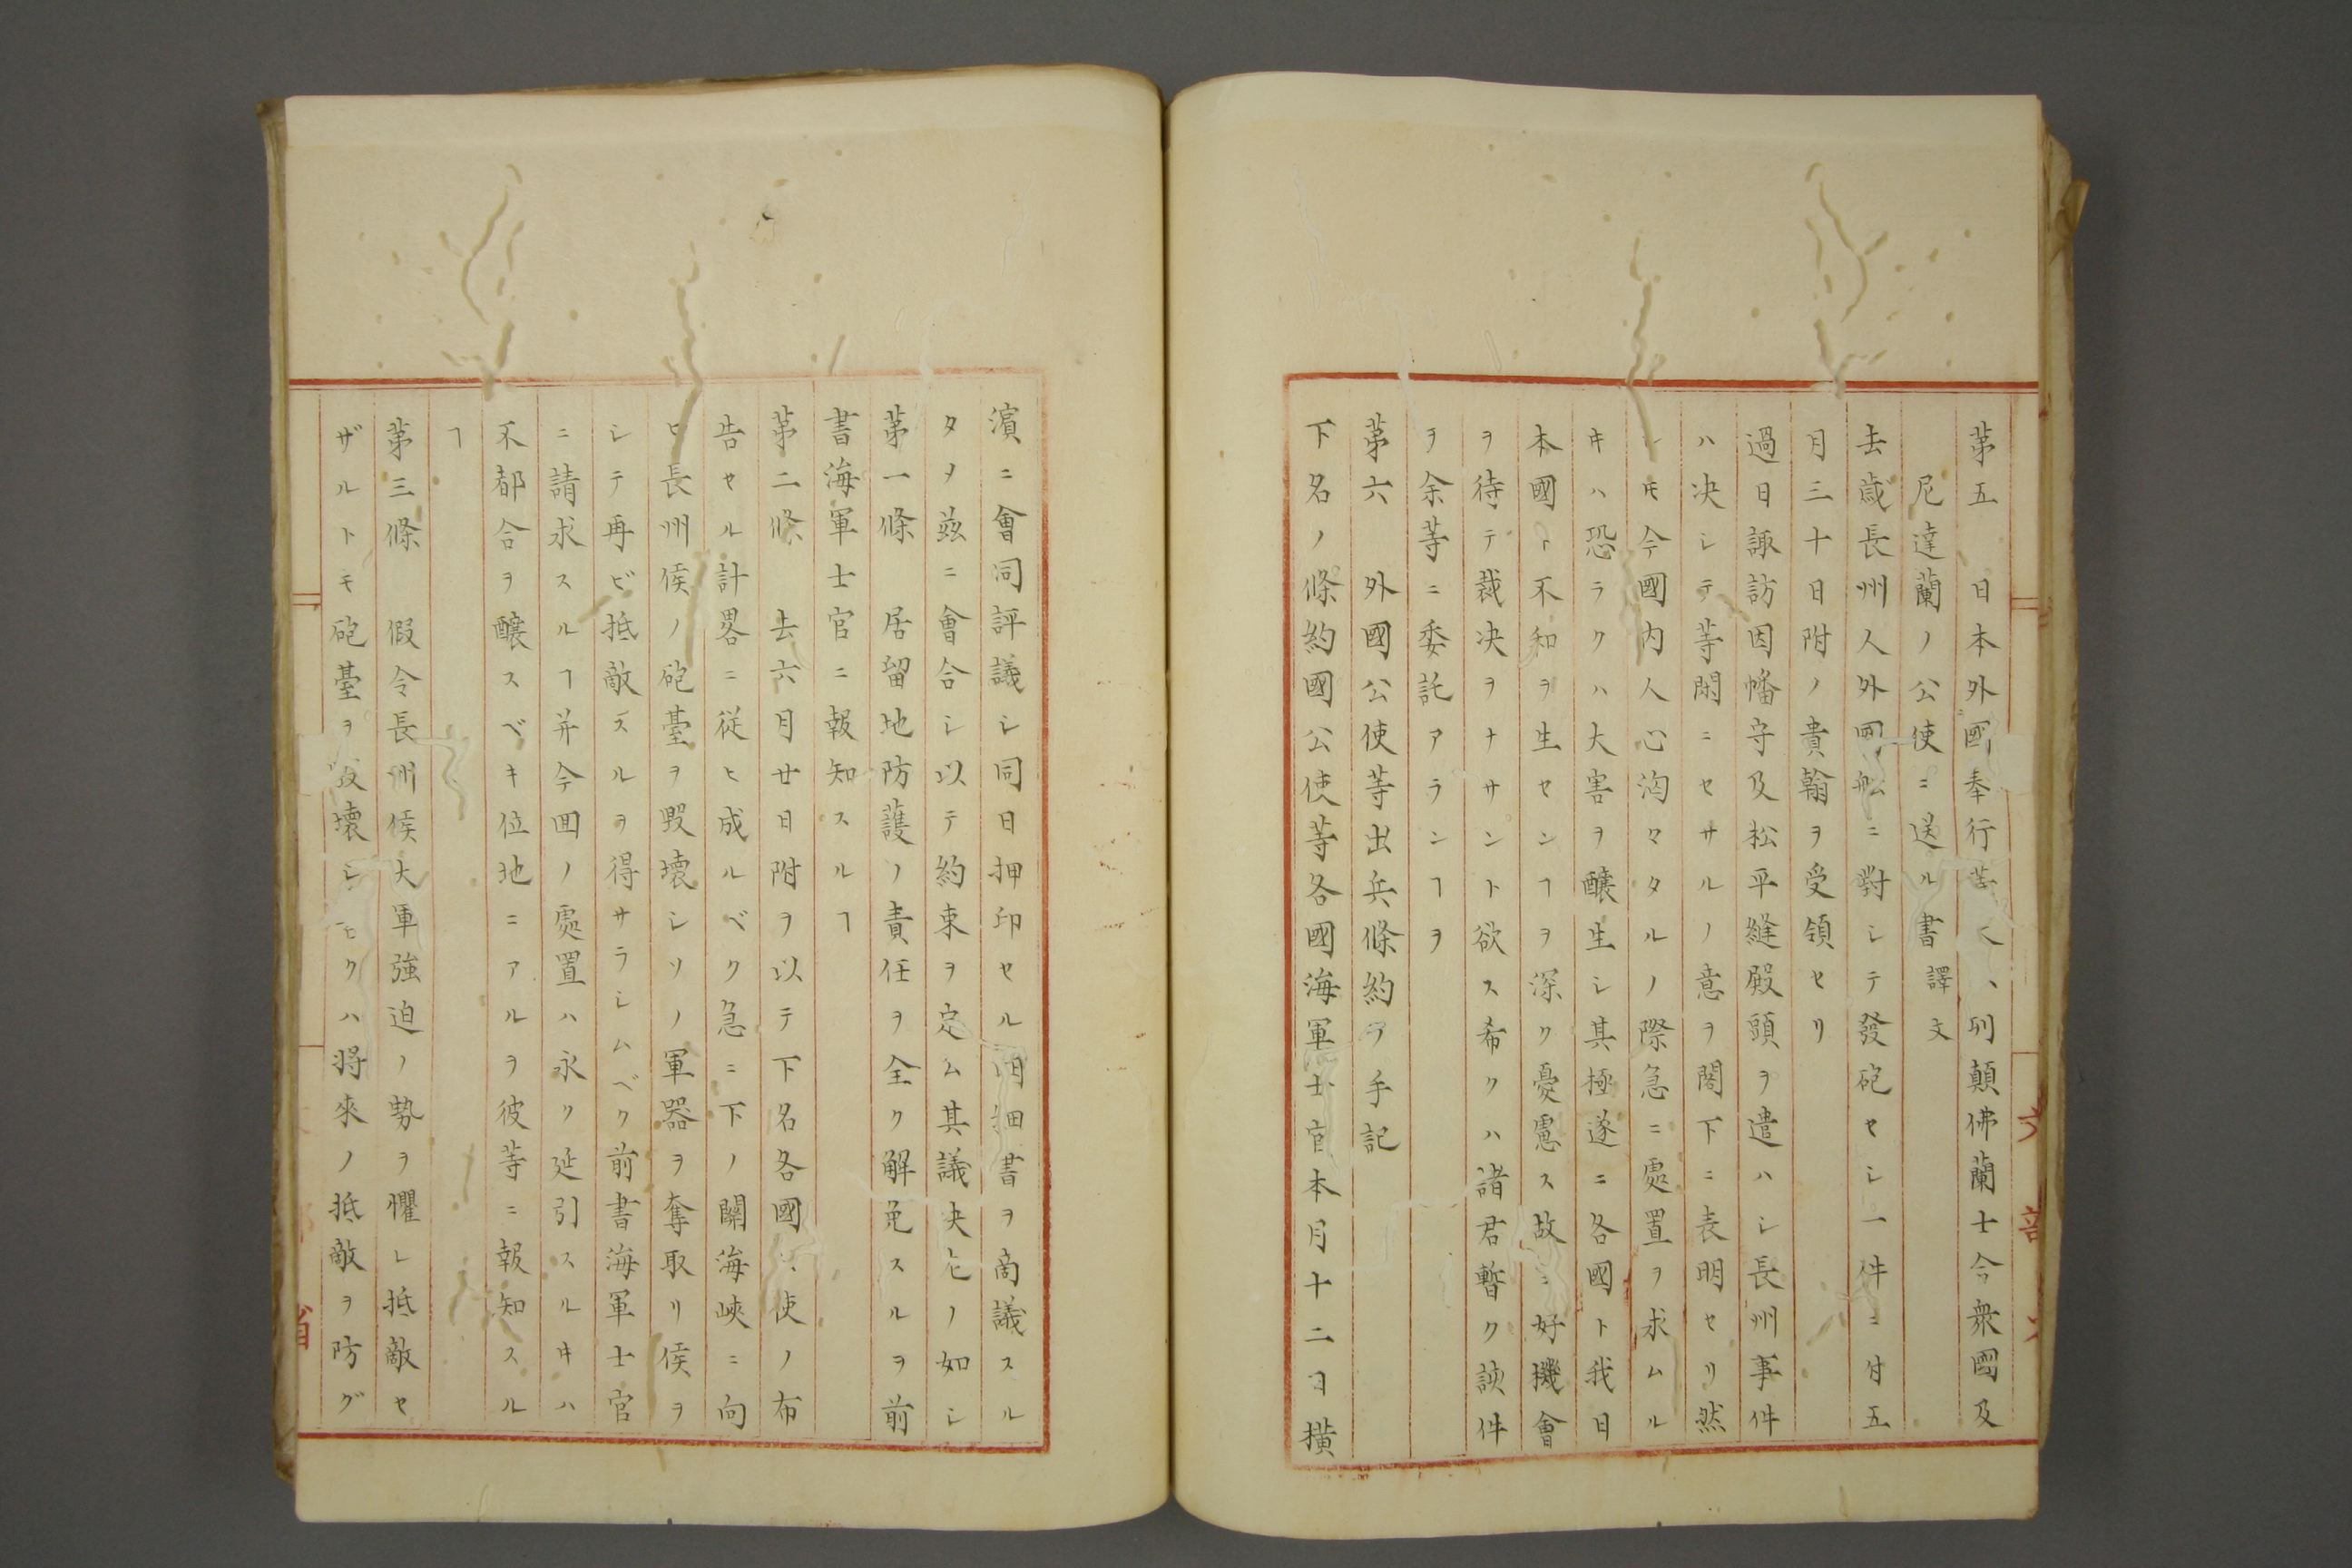 第五　日本外國奉行等ヨリ列顛佛蘭士今衆國及
尼達蘭ノ公使ニ送ル書 譯文
去歳長州人外國舩ニ對シテ發砲セシ一件ニ付五
月三十日附ノ貴翰ヲ受領セリ
過日諏訪因幡守及松平縫殿頭ヲ遣ハシ長州事件
ハ决シテ等閑ニセサルノ意ヲ閣下ニ表明セリ然
レ𪜈今國内人心洶々タルノ際急ニ處置ヲ求ムル
ヰハ恐ラクハ大害ヲ釀生シ其極遂ニ各國ト我日
本國ト不和ヲ生センヿヲ深ク憂慮ス故ニ好機會
ヲ待テ裁决ヲナサント欲ス希クハ諸君暫ク該件
ヲ余等ニ委託アランヿヲ
第六　外國公使等出兵條約ノ手記
下名ノ條約國公使等各國海軍士官本月十二日横
濵ニ會同評議シ同日押印セル書ヲ商議スル
タメ茲ニ會合シ以テ約束ヲ定ム其議决左ノ如シ
第一條　居留地防護ノ責任ヲ全ク解免スルヲ前
書海軍士官ニ報知スルヿ
第二條　去六月廿日附ヲ以テ下名各國公使ノ布
告セル計畧ニ従ヒ成ルベク急ニ下ノ關海峽ニ向
ヒ長州侯ノ砲臺ヲ毀壞シソノ軍器ヲ奪取リ侯ヲ
シテ再ビ抵敵スルヲ得サラシムベク前書海軍士官
ニ請求スルヿ并今囬ノ處置ハ永ク延引スルヰハ
不都合ヲ釀スベキ位地ニアルヲ彼等ニ報知スル
ヿ
第三條　假令長州侯大軍強迫ノ勢ヲ懼レ抵敵セ
ザルトモ砲臺ヲ毀壞シモクハ將來ノ抵敵ヲ防グ